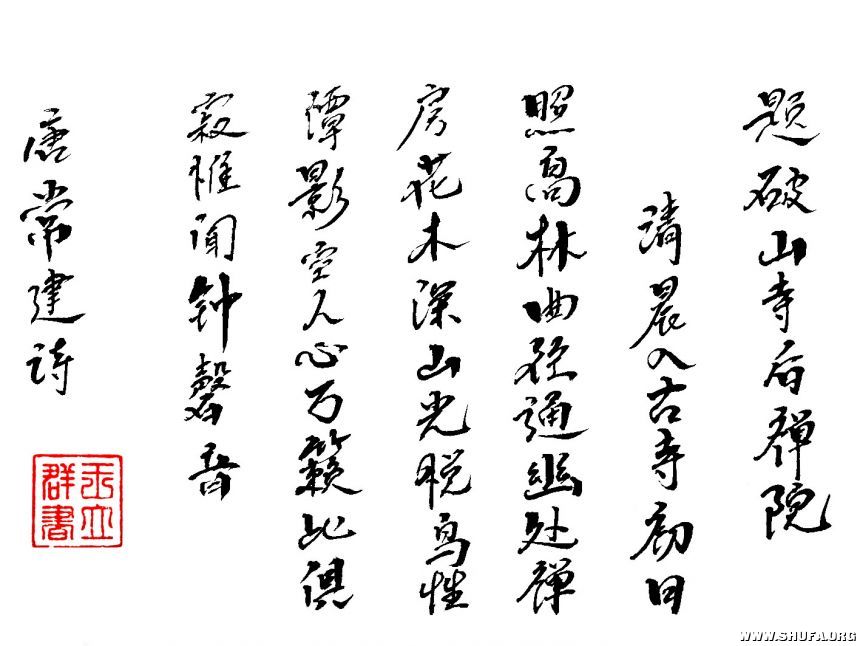 题破山寺后禅院
清晨入古寺初日
照高林曲径通幽处禅
房花木深山光悦鸟性
潭影空人心万籁此俱
寂惟闻钟磬音
唐常建诗
立
群書
WWW.SHUFA.ORG